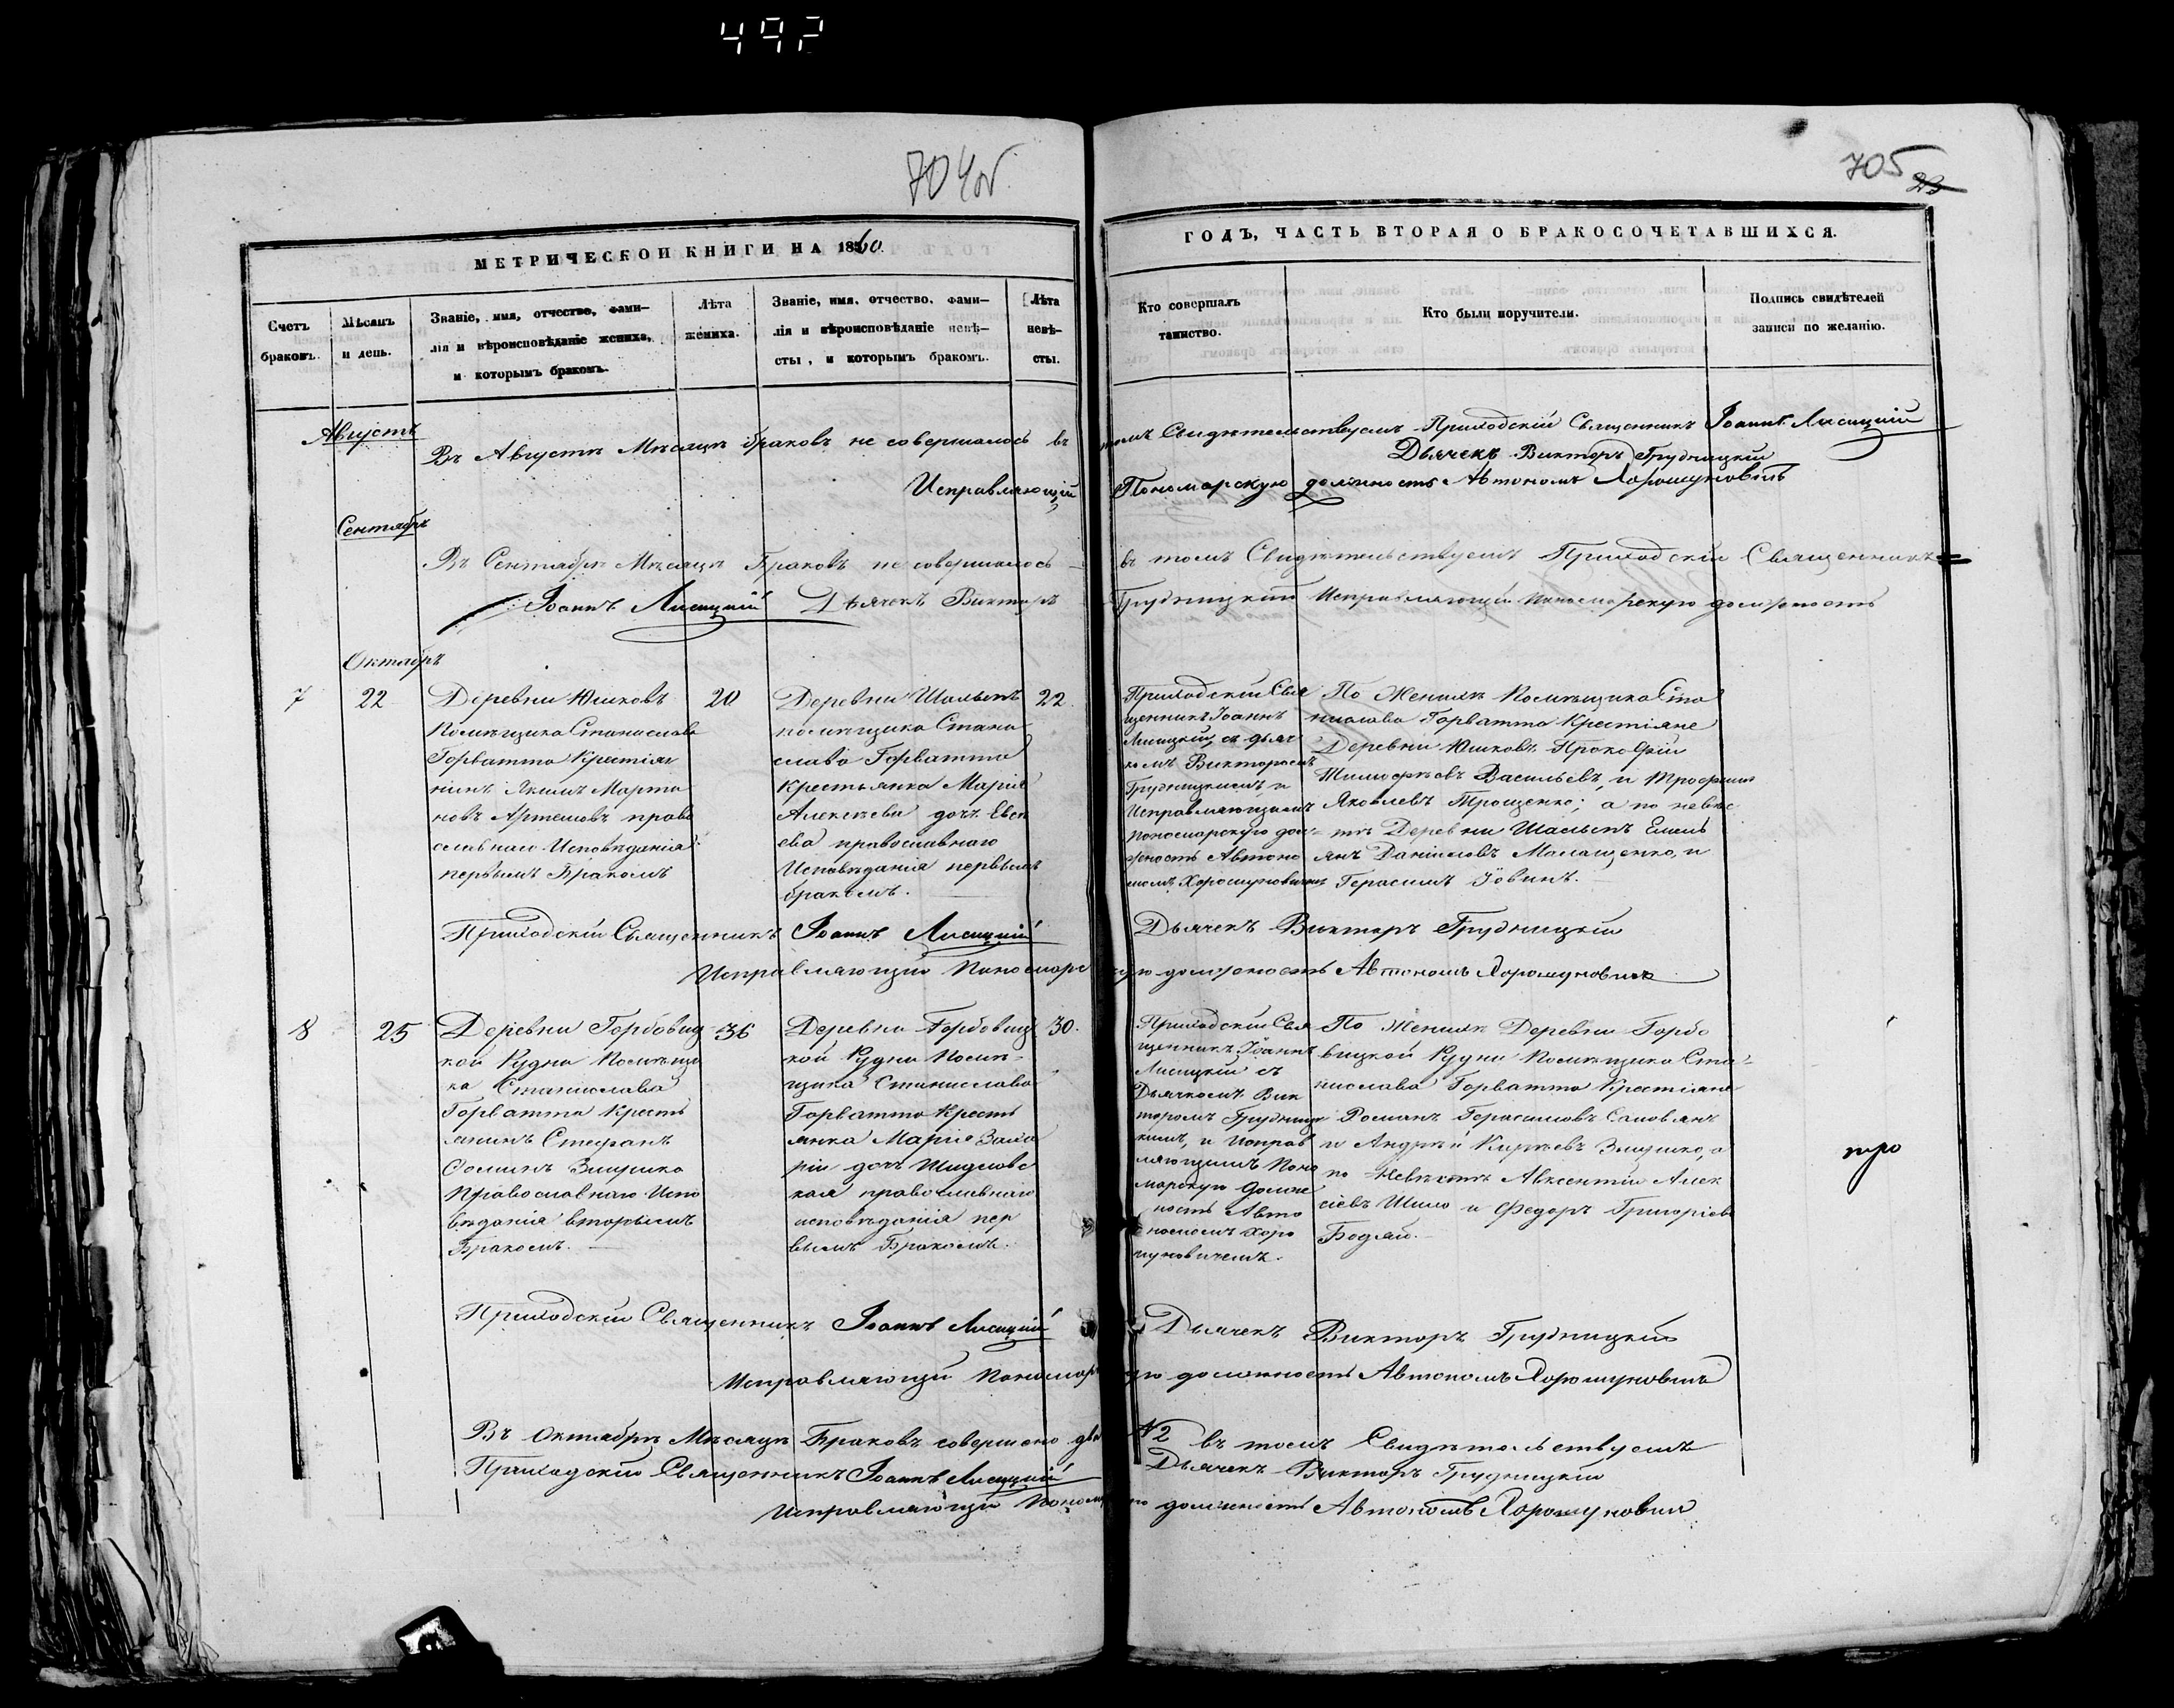 492
704об.
705
23
МЕТРИЧЕСКОЙ КНИГИ НА 1860.
ГОДЪ, ЧАСТЬ ВТОРАЯ О БРАКОСОЧЕТАВШИХСЯ.
Счетъ
браковъ.
Мѣсяцъ
и день.
Званіе, имя, отчество, фами-
лія и вѣроисповѣданіе жениха,
и которымъ бракомъ.
Лѣта
жениха.
Званіе, имя, отчество, фами-
лія и вѣроисповѣданіе невѣ-
сты, и которымъ бракомъ.
Лѣта
невѣ-
сты.
Кто совершалъ
таинство.
Кто были поручители.
Подпись свидѣтелей
записи по желанію.
Августъ
Въ Августѣ Мѣсяцѣ браковъ не совершалось въ томъ Свидѣтельствуемъ Приходскій Священникъ Іоаннъ Лисицкій
Дьячекъ Викторъ Грудницкій
Исправляющій Пономарскую должность Автономъ Хорошуновичъ
Сентябрь
Въ Сентябрѣ Мѣсяцѣ Браковъ не совершалось въ томъ Свидѣтельствуемъ Приходскій Священникъ
Іоаннъ Лисицкій Дьячекъ Викторъ Грудницкій Исправляющій Пономарскую должность
Октябрь
7
22
Деревни Юшковъ
Помѣщика Станислава
Горватта Крестіян
нинъ Якимъ Марти
новъ Артемовъ право
славнаго Исповѣданія
первымъ Бракомъ
20
Деревни Шалыпъ
помѣщика Стани
слава Горватта
Крестьянка Марія
Алексѣева дочь Евсе
ева православнаго
Исповѣданія первымъ
бракомъ.
22.
Приходскій Свя
щенникъ Іоаннъ
Лисицкій, съ дьяч
комъ Викторомъ
Грудницкимъ, и
Исправляющимъ
пономарскую дол-
жность Автоно
момъ Хорошуновичемъ
По Женихѣ Помѣщика Ста
нислава Горватта Крестіяне
Деревни Юшковъ Прокофій
Тимофѣевъ Васильевъ, и Трофимъ
Яковлевъ Трощенко; а по невѣс
тѣ Деревни Шалыпъ Емель
янъ Даніиловъ Малащенко, и
Герасимъ Іовинъ.
Приходскій Священникъ Іоаннъ Лисицкій Дьячекъ Викторъ Грудницкій
Исправляющій Пономарскую должность Автономъ Хорошуновичъ
8
25
Деревни Горбовиц
кой Рудни Помѣщи
ка Станислава
Горватта Кресть
янинъ Стефанъ
Фоминъ Змушко
Православнаго Испо
вѣданія вторымъ
Бракомъ.
36
Деревни Горбовиц
кой Рудни Помѣ-
щика Станислава
Горватта Кресть
янка Марія Заха
рія дочь Шидловс
кая православнаго
исповѣданія пер
вымъ Бракомъ.
30.
Приходскій Свя
щенникъ Іоаннъ
Лисицкій съ
Дьячкомъ Вик
торомъ Грудниц
кимъ, и Исправ
ляющимъ Поно
марскую долж
ность Авто
номомъ Хоро
шуновичемъ.
По Женихѣ Деревни Горбо
вицкой Рудни Помѣщика Ста-
нислава Горватта Крестіяне
Романъ Герасимовъ Самовянъ
и Андрей Кирѣевъ Змушко, а
по Невѣстѣ Авксентій Алек
сіевъ Шило и Федоръ Григоріевъ
Бодяй.
Приходскій Священникъ Іоаннъ Лисицкій Дьячекъ Викторъ Грудницкій
Исправляющій Пономарскую должность Автономъ Хорошуновичъ
Въ Октябрѣ Мѣсяцѣ Браковъ совершено два №2 въ томъ Свидѣтельствуемъ
Приходскій Священникъ Іоаннъ Лисицкій Дьячекъ Викторъ Грудницкій
Исправляющій должность Автономъ Хорошуновичъ